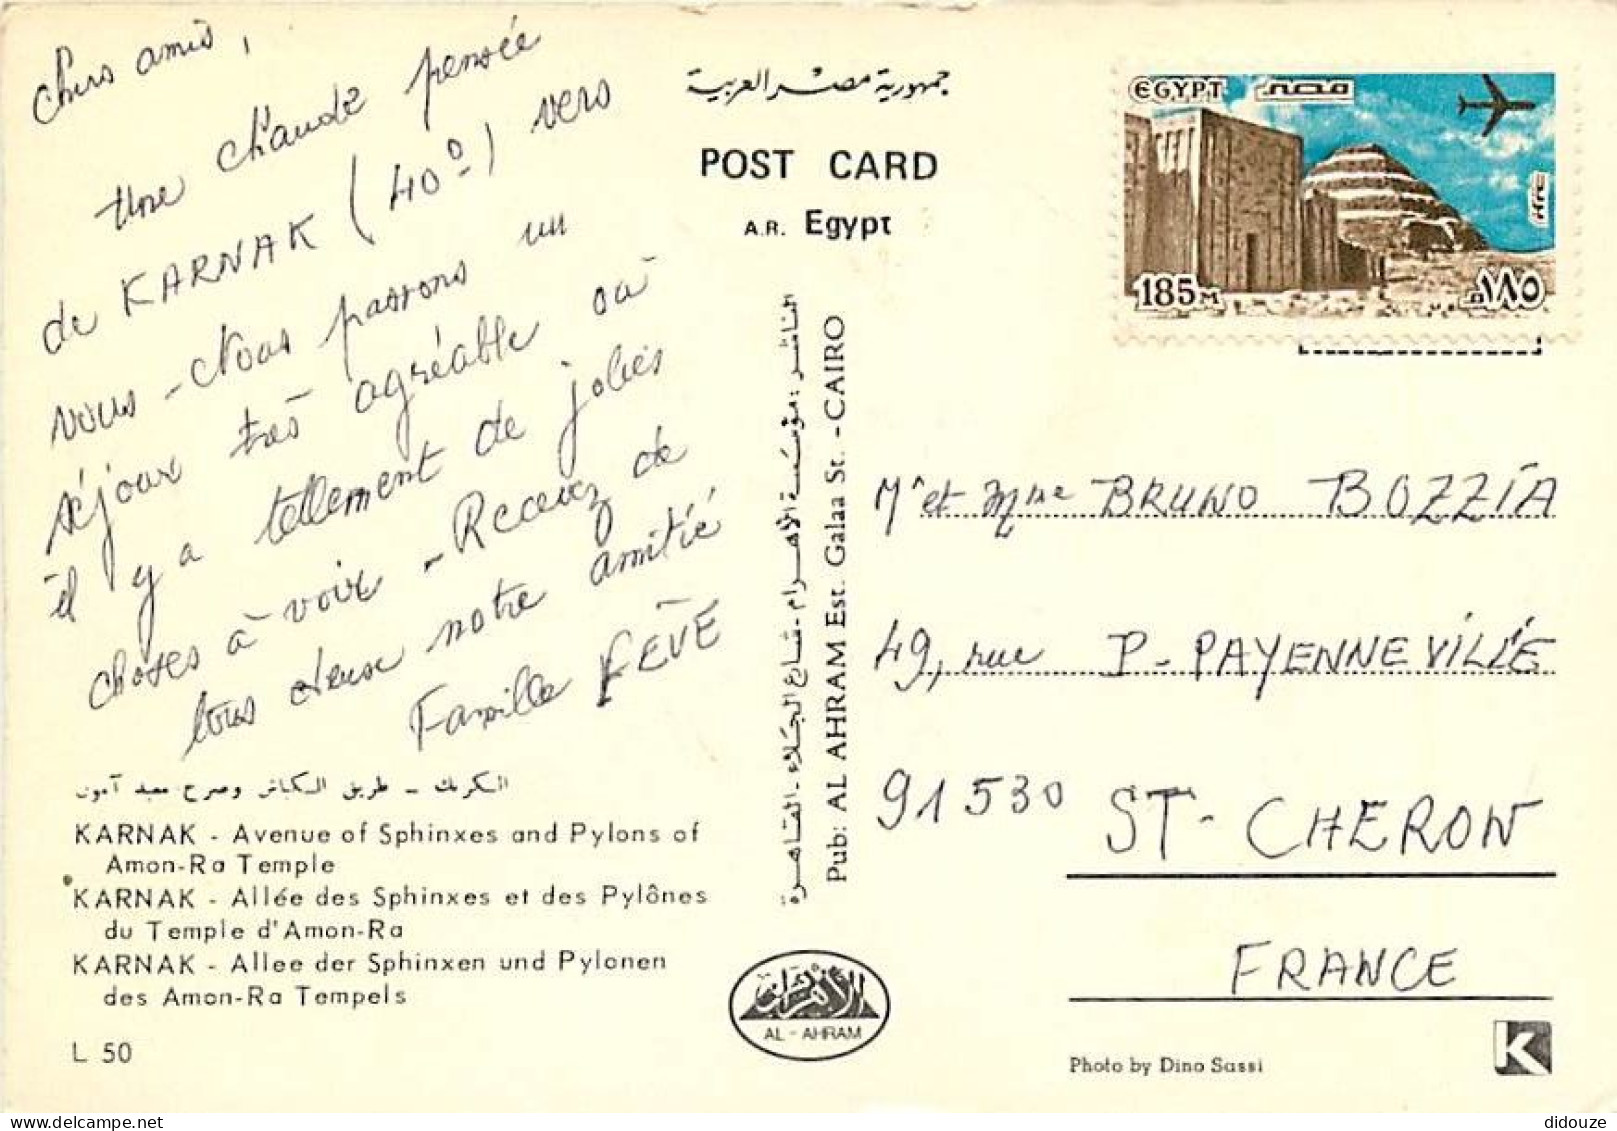 Chers amis,
Une chaude pensée
de KARNAK (40°) vers
vous - Nous passons un
séjour très agréable où
il y a tellement de jolies
choses à voir - Recevez de
tous deux notre amitié
Famille FEVE
الكرنك - طريق الكباش وصرح معبد آمون
KARNAK - Avenue of Sphinxes and Pylons of
Amon-Ra Temple
KARNAK - Allée des Sphinxes et des Pylônes
du Temple d'Amon-Ra
KARNAK - Allee der Sphinxen und Pylonen
des Amon-Ra Tempels
L 50
جمهورية مصر العربية
POST CARD
A.R. Egypt
الناشر : مؤسسة الأهرام - شارع الجلاء - القاهرة
Pub: AL AHRAM Est. Galaa St. - CAIRO
الأهرام
AL - AHRAM
EGYPT مصر
185 M ١٨٥ م
Mr et Mme BRUNO BOZZIA
49, rue P - PAYENNEVILLE
91530 ST - CHERON
FRANCE
Photo by Dino Sassi
K
didouze